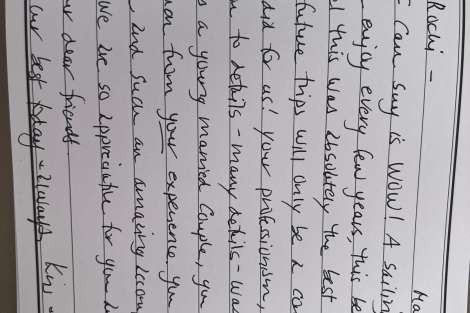 Ma
Rochi -
Can say is WOW! A sailin
enjoy every few years, this be
this was absolutely the best
future trips will only be a co
did for us! your professionism,
to details - many details - was
s a young married couple, you
on from your experience. you
and such an amazing accom
We are so appreciative for you
ur dear friends
our best today + always